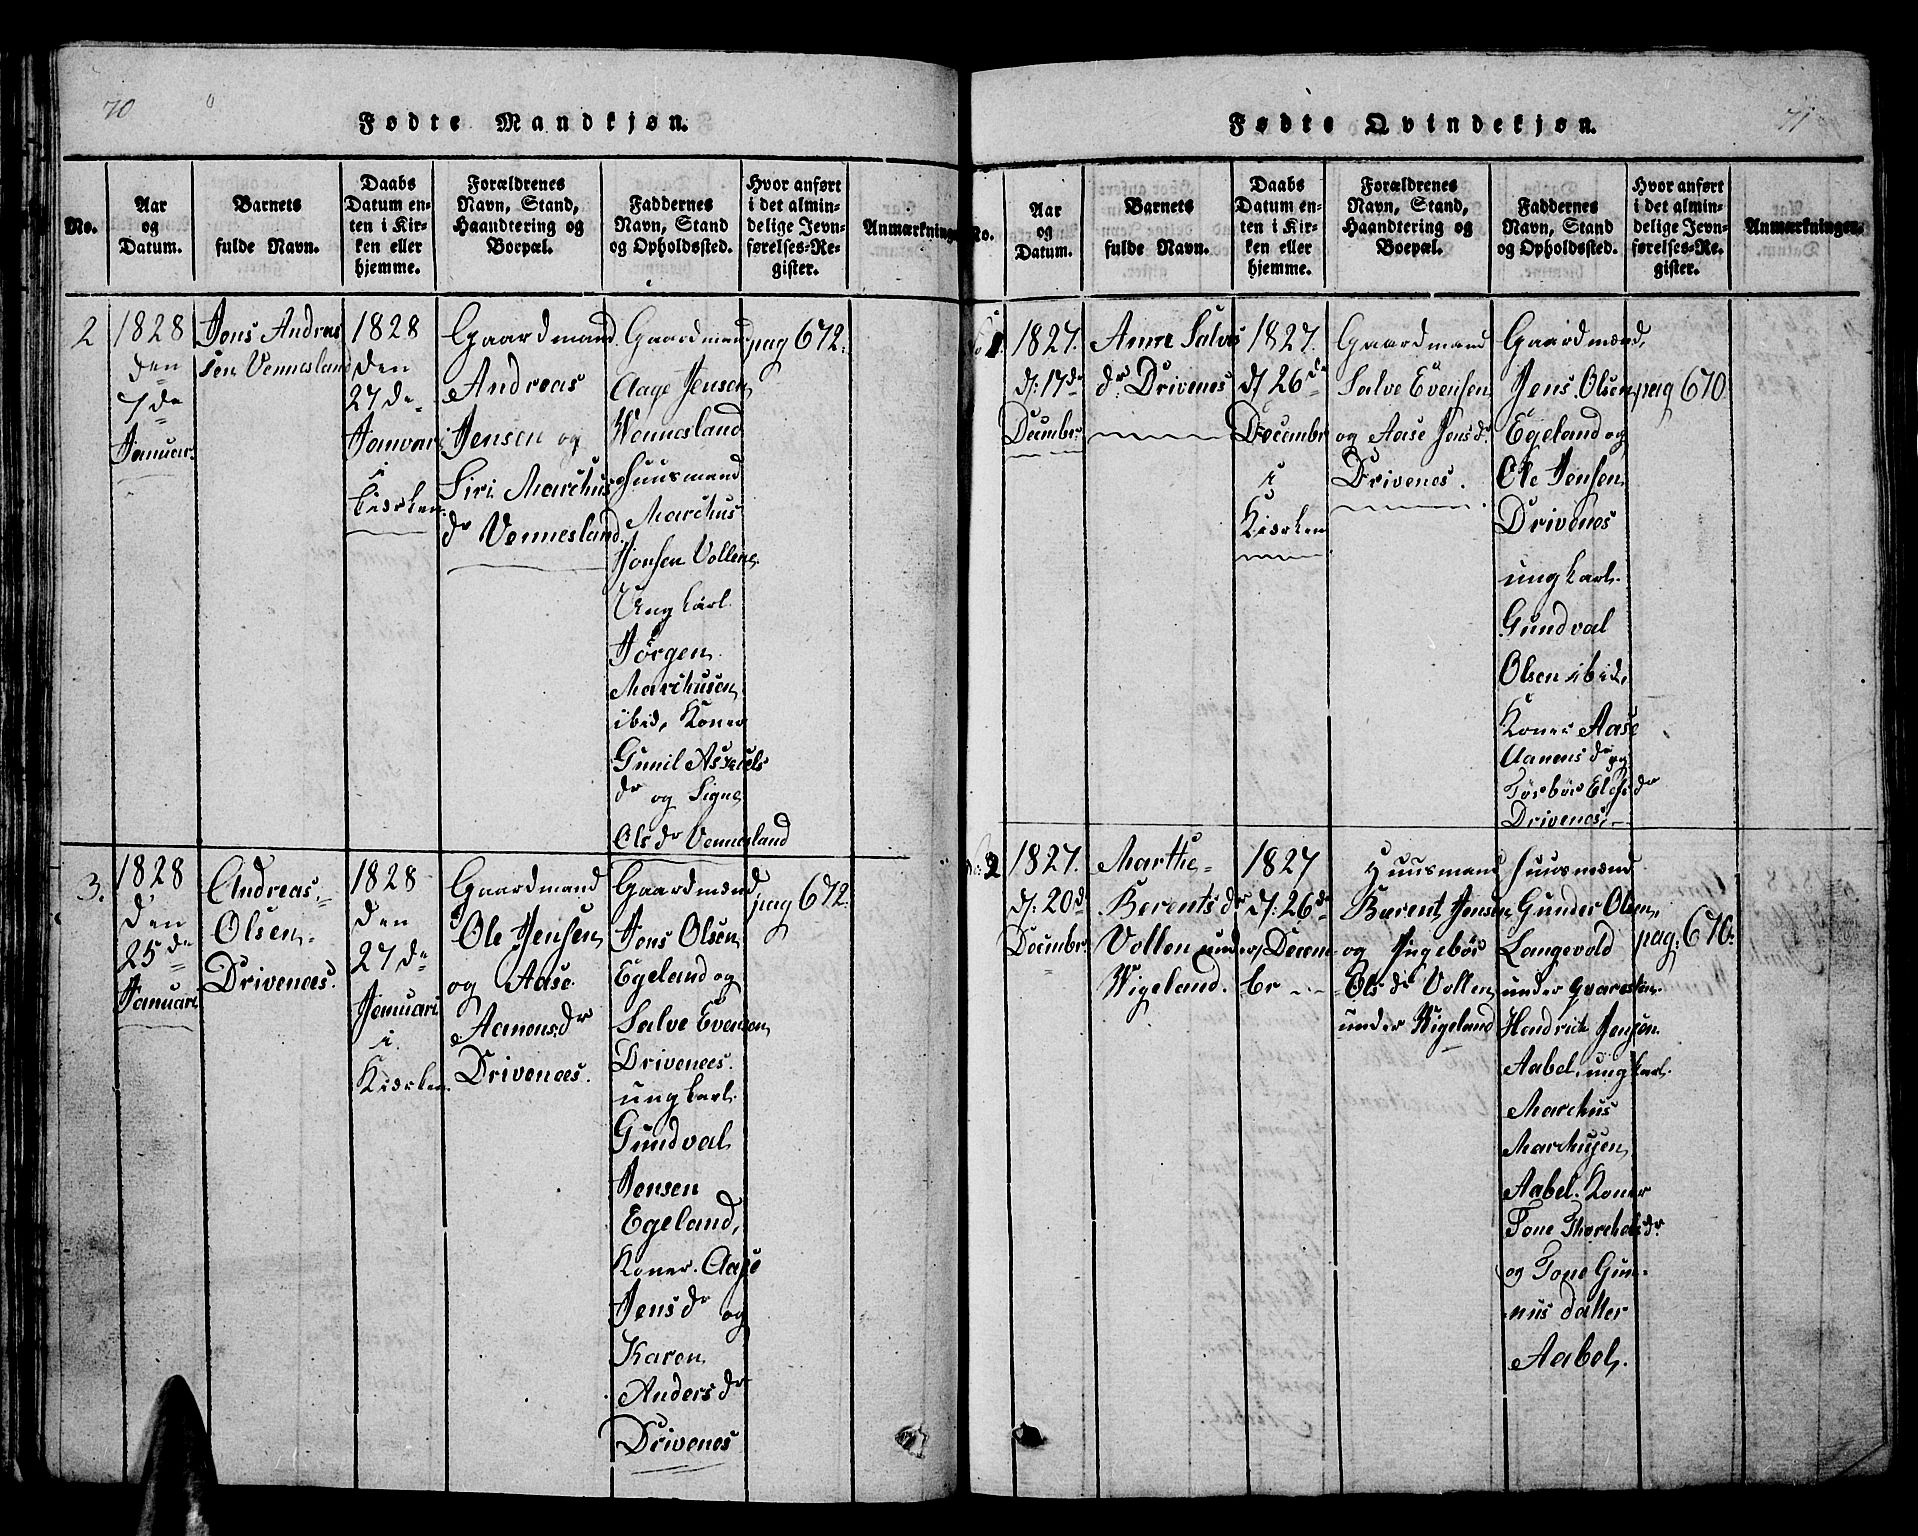 70
Fødte Mandkjøn.
No.
Aar
og
Datum.
Barnets
fulde Navn.
Daabs
Datum en-
ten i Kir-
ken eller
hjemme.
Forældrenes
Navn, Stand,
Haandtering og
Boepæl.
Faddernes
Navn, Stand
og Opholdssted.
Hvor anført
i det almin-
delige Jevn-
førelses-Re-
gister.
Anmærkninge
2
1828
den
7de
Januar.
Jens Andreas
sen Vennesland
1828
den
27de
Januari
i
Kirken.
Gaardmand
Andreas
Jensen og
Siri Marchus
dr Vennesland.
Gaardmand
Aage Jensen
Vennesland
Huusmand
Marchus
Jensen Vollene,
Ungkarl.
Jørgen
Marchusen
ibid, Koner
Gunil Aanuls
dr og Signe
Ols dr Vennesland
pag 672.
3.
1828
den
25de
Januari
Andreas
Olsen
Drivenæs.
1828
den
27de
Januari
i
Kirken.
Gaardmand
Ole Jensen
og Aase
Aanens dr
Drivenæs.
Gaardmænd,
Jens Olsen
Egeland og
Salve Evensen,
Drivenæs.
ungkarl.
Gundval
Jensen
Egeland,
Koner. Aase
Jens dr og
Karen
Anders dr
Drivenes
pag 672.
71
Fødte Qvindekjøn.
No.
Aar
og
Datum.
Barnets
fulde Navn.
Daabs
Datum en-
ten i Kir-
ken eller
hjemme.
Forældrenes
Navn, Stand,
Haandtering og
Boepæl.
Faddernes
Navn, Stand
og Opholdssted.
Hvor anført
i det almin-
delige Jevn-
førelses-Re-
gister.
Anmærkninger.
1.
1827.
d: 17de
Decembr.
Anne Salves
dr Drivenes
1827.
d: 26de
Decembr
i
Kirken
Gaardmand
Salve Evensen
og Aase Jens dr.
Drivenes.
Gaardmænd,
Jens Olsen
Egeland og
Ole Jensen
Drivenes
ungkarl.
Gundval
Olsen ibid,
Koner Aase
Aanens dr og
Torbør Elefs dr
Drivenes,
pag 670
2
1827.
d: 20de
Decembr.
Marthe
Berents dr
Vollen under
Vigeland.
1827
d: 26de
Decem-
br
Huusmand
Berent Jensen
og Ingebor
Ols dr Vollen
under Vigeland
Huusmænd
Gunder Olsen,
Langevold
under Qvarsten.
Hendrik Jensen
Aabel, ungkarl.
Marchus
Marchusen
Aabel. Koner
Tone Thorchels dr
og Tone Gun-
nus datter
Aabel.
pag: 670.